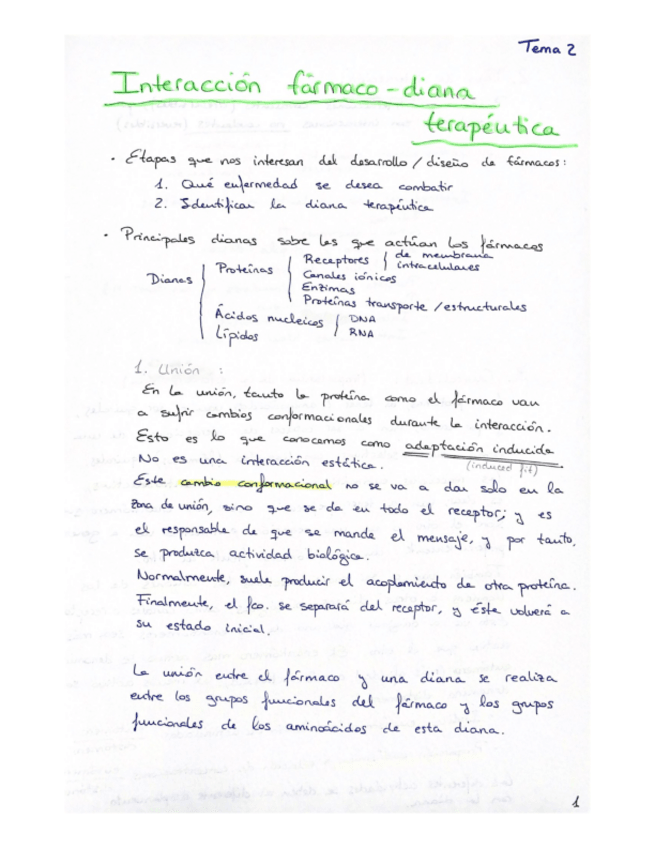 Tema 2
Interacción fármaco-diana
terapéutica
· Etapas que nos interesan del desarrollo / diseño de fármacos:
1. Qué enfermedad se desea combatir
2. Identificar la diana terapéutica
· Principales dianas sobre las que actúan los fármacos
Dianas
Proteínas
Receptores
de membrana
intracelulares
Canales iónicos
Enzimas
Proteínas transporte / estructurales
Ácidos nucleicos
DNA
RNA
Lípidos
1. Unión :
En la unión, tanto la proteína como el fármaco van
a sufrir cambios conformacionales durante la interacción.
Esto es lo que conocemos como adaptación inducida
(induced fit)
No es una interacción estática.
Este cambio conformacional no se va a dar solo en la
zona de unión, sino que se da en todo el receptor; y es
el responsable de que se mande el mensaje, y por tanto,
se produzca actividad biológica.
Normalmente, suele producir el acoplamiento de otra proteína.
Finalmente, el fco. se separará del receptor, y éste volverá a
su estado inicial.
La unión entre el fármaco y una diana se realiza
entre los grupos funcionales del fármaco y los grupos
funcionales de los aminoácidos de esta diana.
1